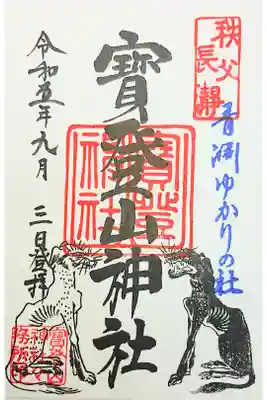 秩父
長瀞
青淵ゆかりの社
寳登山神社
寳登山神社
令和五年九月 三日登拝
寳登山
神社
務所印